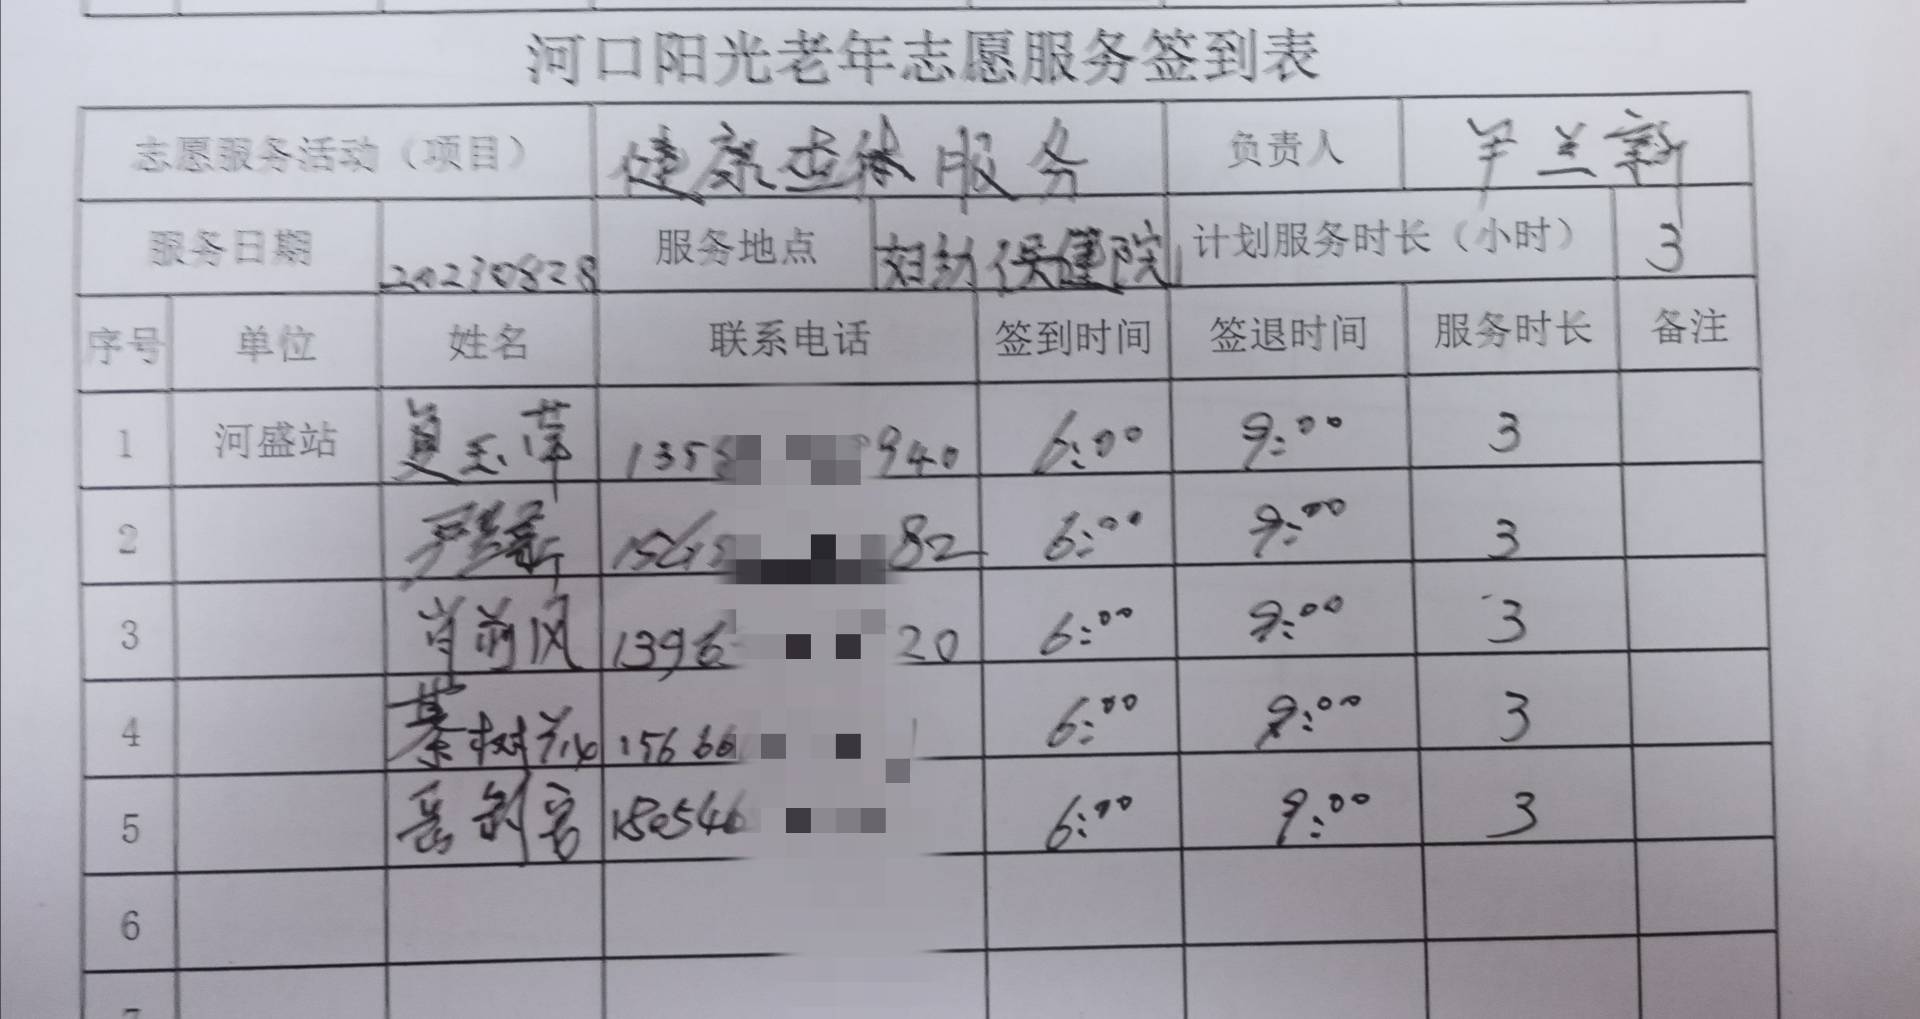 河口阳光老年志愿服务签到表
志愿服务活动（项目） 健康查体服务 负责人 尹兰新
服务日期 20230828 服务地点 妇幼保健院 计划服务时长（小时） 3
序号 单位 姓名 联系电话 签到时间 签退时间 服务时长 备注
1 河盛站 135 940 6:00 9:00 3
2 尹兰新 82 6:00 9:00 3
3 1396 20 6:00 9:00 3
4 15666 6:00 9:00 3
5 180546 6:00 9:00 3
6